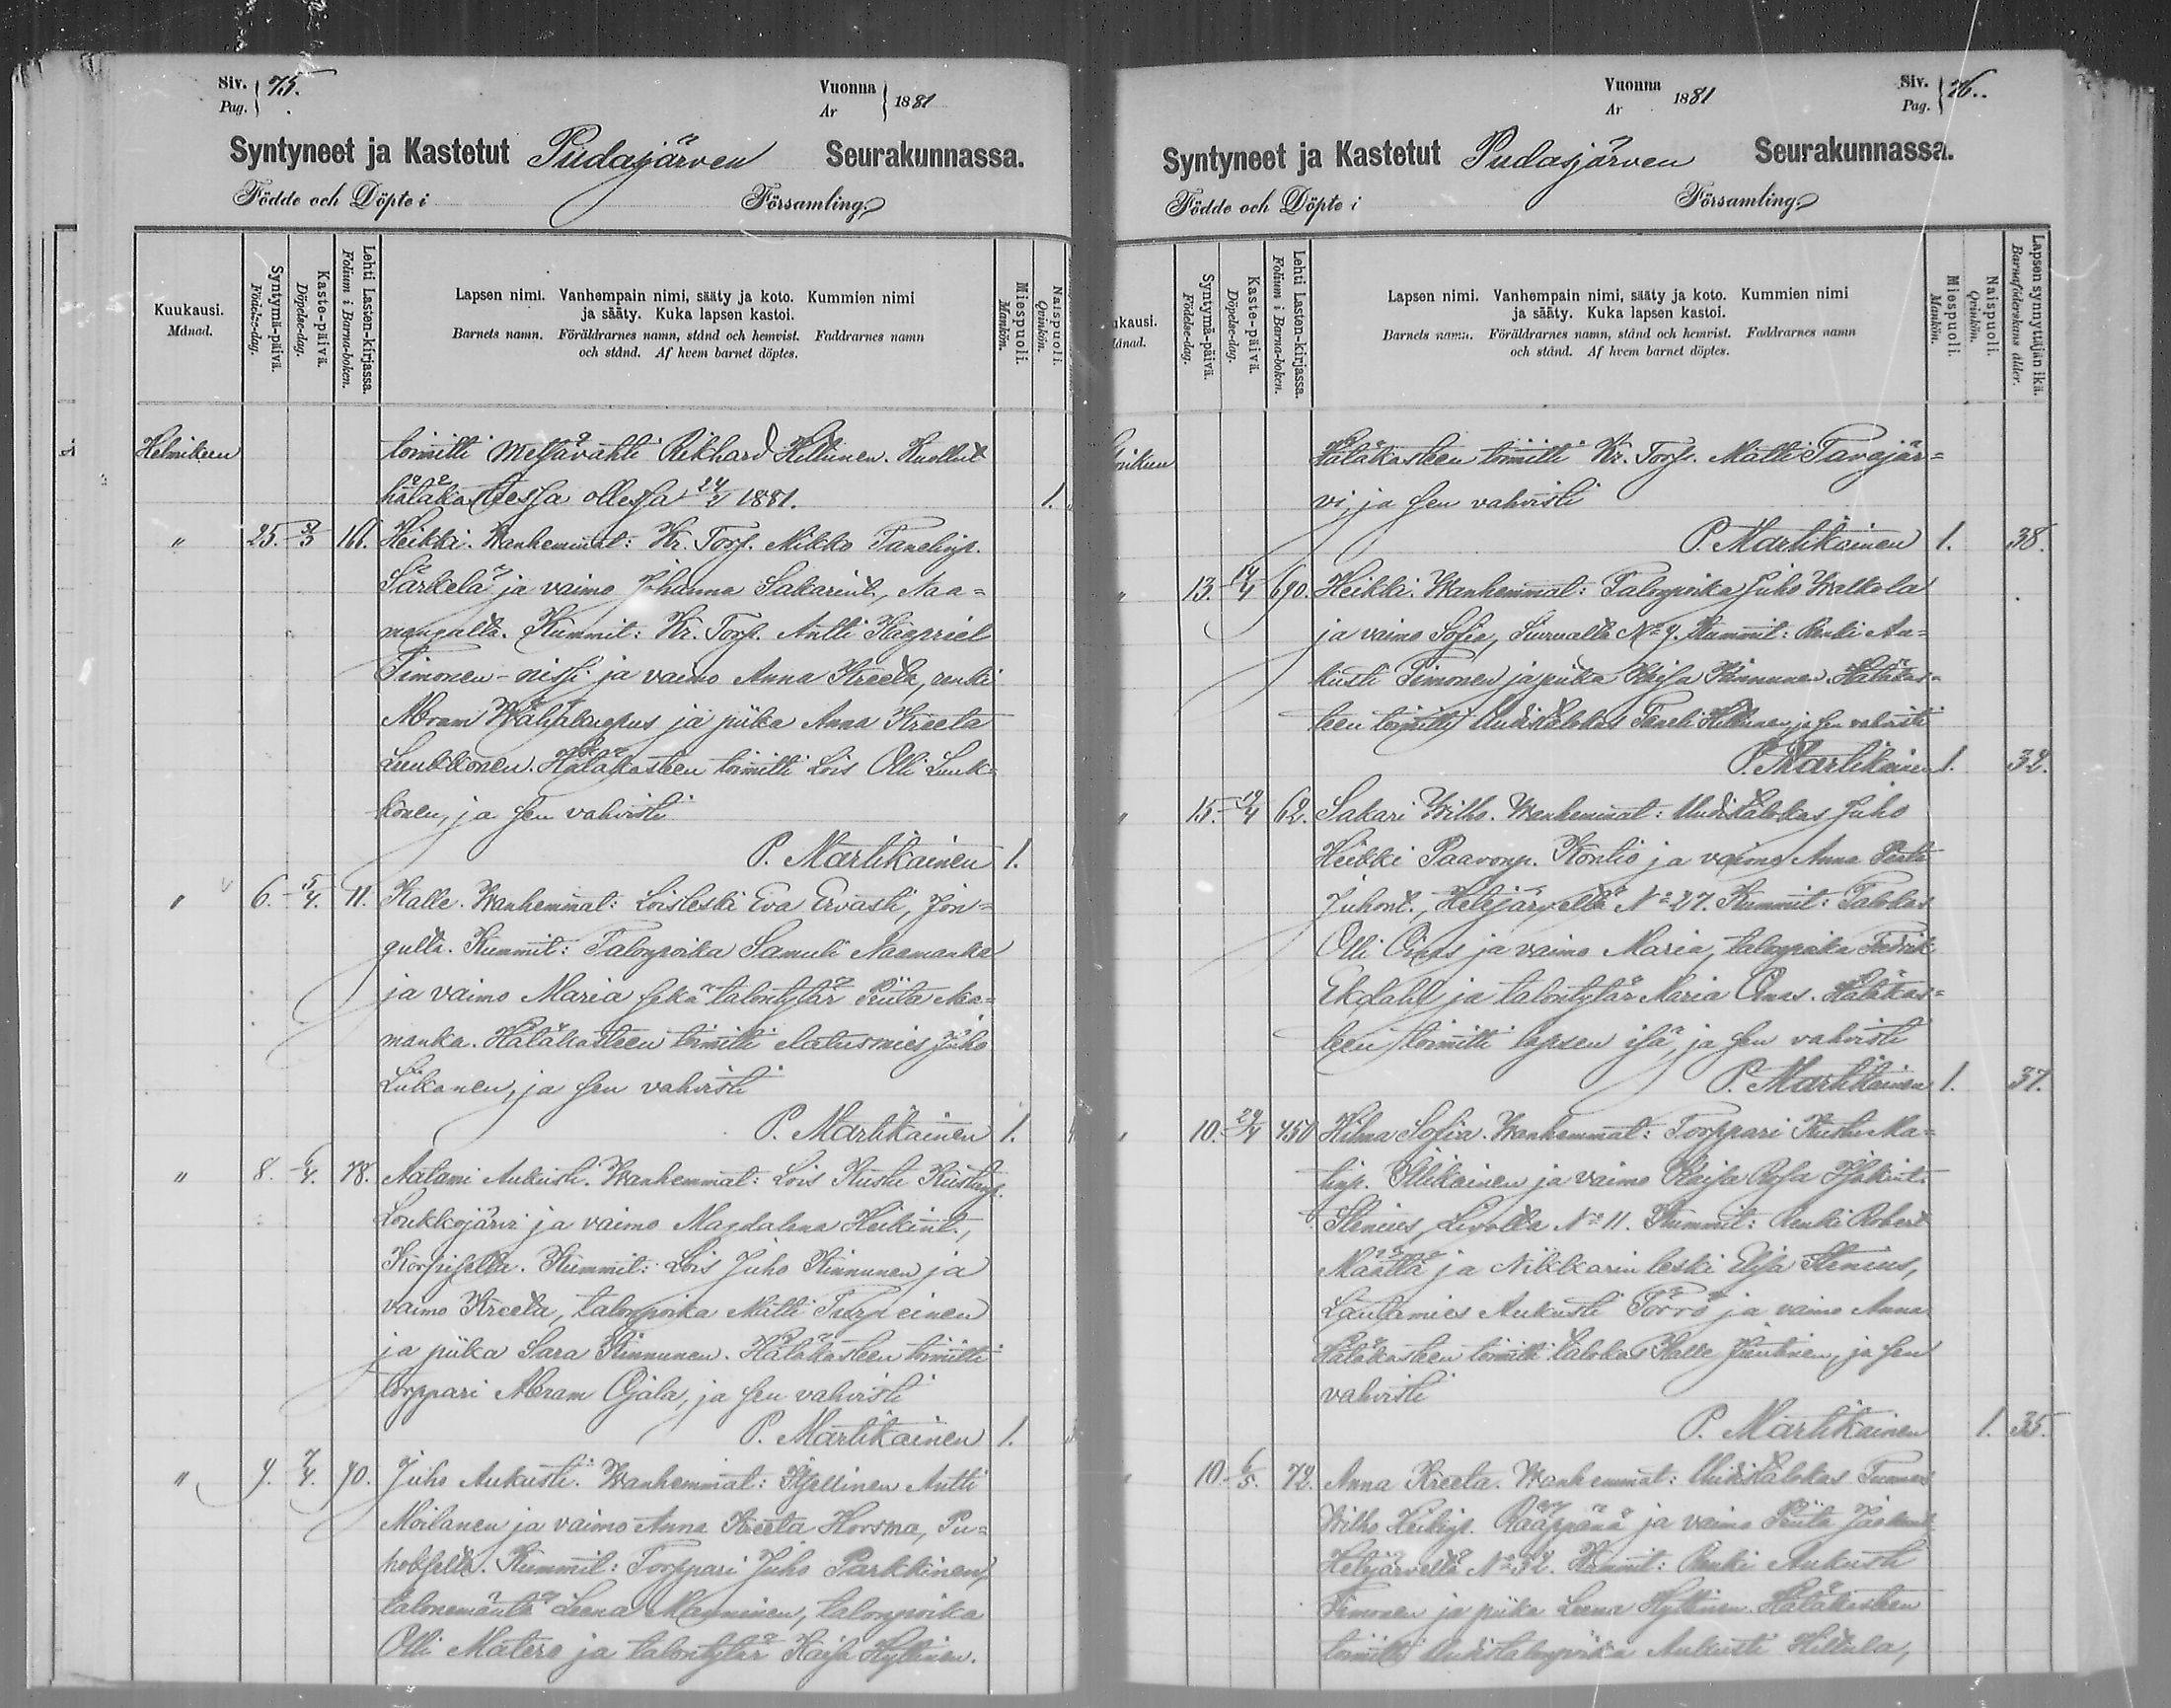 Siv. Pag. 75.
Vuonna År 1881
Syntyneet ja Kastetut Pudasjärven Seurakunnassa.
Födde och Döpte i Församling
Kuukausi. Månad.
Syntymä-päivä. Födelse-dag.
Kaste-päivä. Döpelse-dag.
Lehti Lasten-kirjassa. Folium i Barna-boken.
Lapsen nimi. Vanhempain nimi, sääty ja koto. Kummien nimi
ja sääty. Kuka lapsen kastoi.
Barnets namn. Föräldrarnes namn, stånd och hemvist. Faddrarnes namn
och stånd. Af hvem barnet döptes.
Miespuoli. Mankön.
Naispuoli. Qvinkön.
Helmikuu toimitti Metsävahti Rikhard Hiltunen. Kuollut
hätäkasteessa ollessa 24/2 1881. 1.
" 25. 161. Heikki. Wanhemmat: Kr. Torp. Mikko Tanelinp.
Särkelä ja vaimo Johanna Sakarint., Naa=
mangalta. Kummit: Kr. Torp. Antti Kaapriel
Timonen-niss. ja vaimo Anna Kreeta, renki
Abram ja piika Anna Kreeta
Luukkonen. Hätäkasteen toimitti Lois Olli Luuk=
konen, ja sen vahvisti
P. Martikainen 1.
" 6. 5/4. 11. Kalle. Wanhemmat: Loisleski Eva Ervasti, Jon=
gulta. Kummit: Talonpoika Samuli Naamanka
ja vaimo Maria sekä talontytär Riita Naa=
manka. Hätäkasteen toimitti elatusmies Juho
Liikanen, ja sen vahvisti
P. Martikainen 1.
" 8. 6/4. 78. Aatami Aukusti. Wanhemmat: Lois Kusti Kustinp.
Loukkojärvi ja vaimo Magdalena Heikint.,
Korpiselta. Kummit: Lois Juho Kinnunen ja
vaimo Kreeta, talonpoika Matti Turpeinen
ja piika Sara Kinnunen. Hätäkasteen toimitti
torppari Abram Ojala, ja sen vahvisti
P. Martikainen 1.
" 9. 7/4. 90. Juho Aukusti. Wanhemmat: Itsellinen Antti
Moilanen ja vaimo Anna Kreeta Horsma, Pu=
hokselta. Kummit: Torppari Juho Parkkinen,
talonemäntä Leena Manninen, talonpoika
Olli Matero ja talontytär Kaisa Hyttinen.
Vuonna År 1881
Siv. Pag. 76.
Syntyneet ja Kastetut Pudasjärven Seurakunnassa.
Födde och Döpte i Församling
ukausi. ånad.
Syntymä-päivä. Födelse-dag.
Kaste-päivä. Döpelse-dag.
Lehti Lasten-kirjassa. Folium i Barna-boken.
Lapsen nimi. Vanhempain nimi, sääty ja koto. Kummien nimi
ja sääty. Kuka lapsen kastoi.
Barnets namn. Föräldrarnes namn, stånd och hemvist. Faddrarnes namn
och stånd. Af hvem barnet döptes.
Miespuoli. Mankön.
Naispuoli. Qvinkön.
Lapsen synnyttäjän ikä. Barnaföderskans ålder.
Hätäkasteen toimitti Kr. Torp. Matti Tavajär=
vi, ja sen vahvisti
P. Martikainen 1. 38.
" 13. 14/4 690. Heikki. Wanhemmat: Talonpoika Juho Walkola
ja vaimo Sofia, Siurualta No 9. Kummit: Renki Au=
kusti Timonen ja piika Kaisa Kinnunen. Hätäkas=
teen toimitti Uudistalokas Taneli Hiltunen, ja sen vahvisti
P. Martikainen 1. 32.
" 15. 19/4 62. Sakari Wilho. Wanhemmat: Uudistalokas Juho
Heikki Paavonp. Kontio ja vaimo Anna
Juhont., Hetejärveltä No 27. Kummit: Talokas
Olli Oinas ja vaimo Maria, talonpoika Fredrik
Ekdahl ja talontytär Maria Oinas. Hätäkas=
teen toimitti lapsen isä, ja sen vahvisti
P. Martikainen 1. 37.
" 10. 29/4 450 Hilma Sofia. Wanhemmat: Torppari Kusti Ma=
tinp. Ollikainen ja vaimo Kaisa Rosa
Stenius, Livolta No 11. Kummit: Renki Robert
Määttä ja Nikkarin leski Elsa Stenius,
Lautamies Aukusti Törrö ja vaimo Anna
Hätäkasteen toimitti talokas Kalle Juntinen, ja sen
vahvisti
P. Martikainen 1. 35.
" 10. 6/5. 72. Anna Kreeta. Wanhemmat: Uudistalokas Tuomas
Wilho Heikinp. Rääppänä ja vaimo Riita
Hetejärveltä No 32. Kummit: Renki Aukusti
Timonen ja piika Leena Hyttinen. Hätäkasteen
toimitti Uudistalonpoika Aukusti Hiltula,